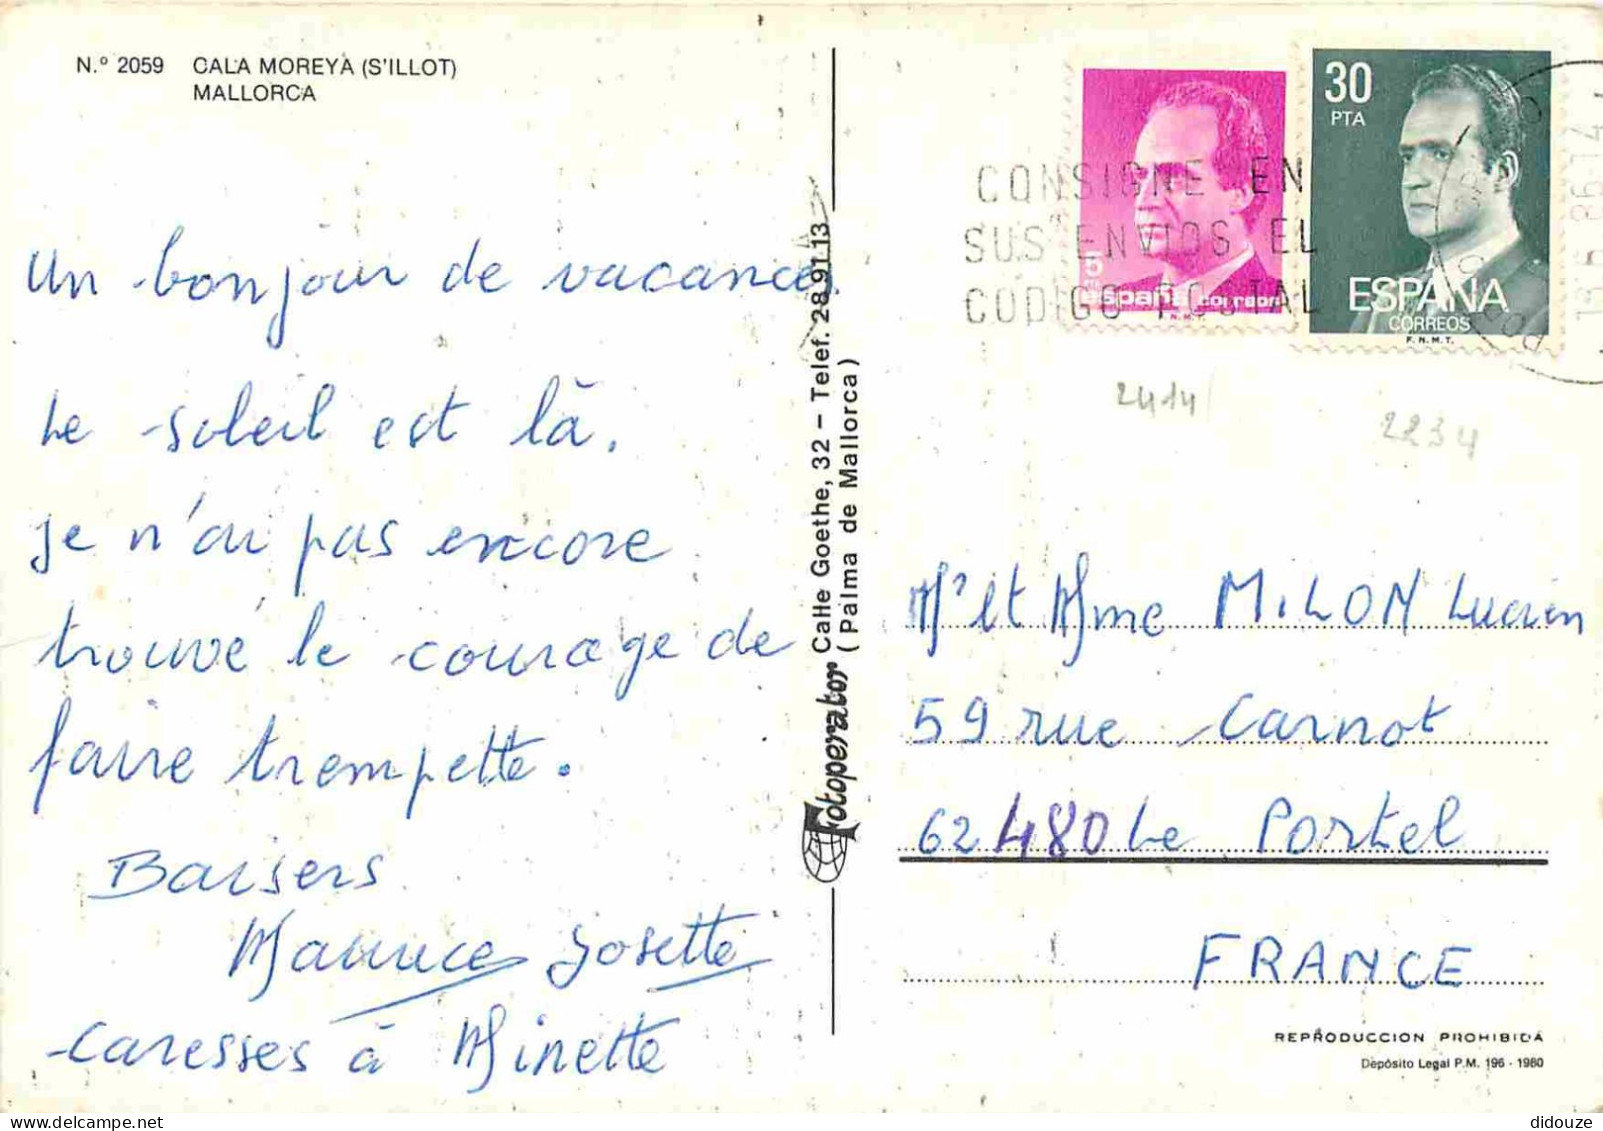 N.º 2059 CALA MOREYA (S'ILLOT)
MALLORCA
Un bonjour de vacances.
Le soleil est là.
je n'ai pas encore
trouvé le courage de
faire trempette.
Baisers
Maurice Josette
Caresses à Minette
Fotoperator Calle Goethe, 32 - Telef. 28 91 13
(Palma de Mallorca)
CONSIGNE EN
SUS ENVIOS EL
CODIGO POSTAL
5
españa correos
F.N.M.T.
30
PTA
ESPAÑA
CORREOS
F.N.M.T.
2414
2234
Mr et Mme MILON Lucien
59 rue Carnot
62480 Le Portel
FRANCE
REPRODUCCION PROHIBIDA
Depósito Legal P.M. 196 - 1980
didouze